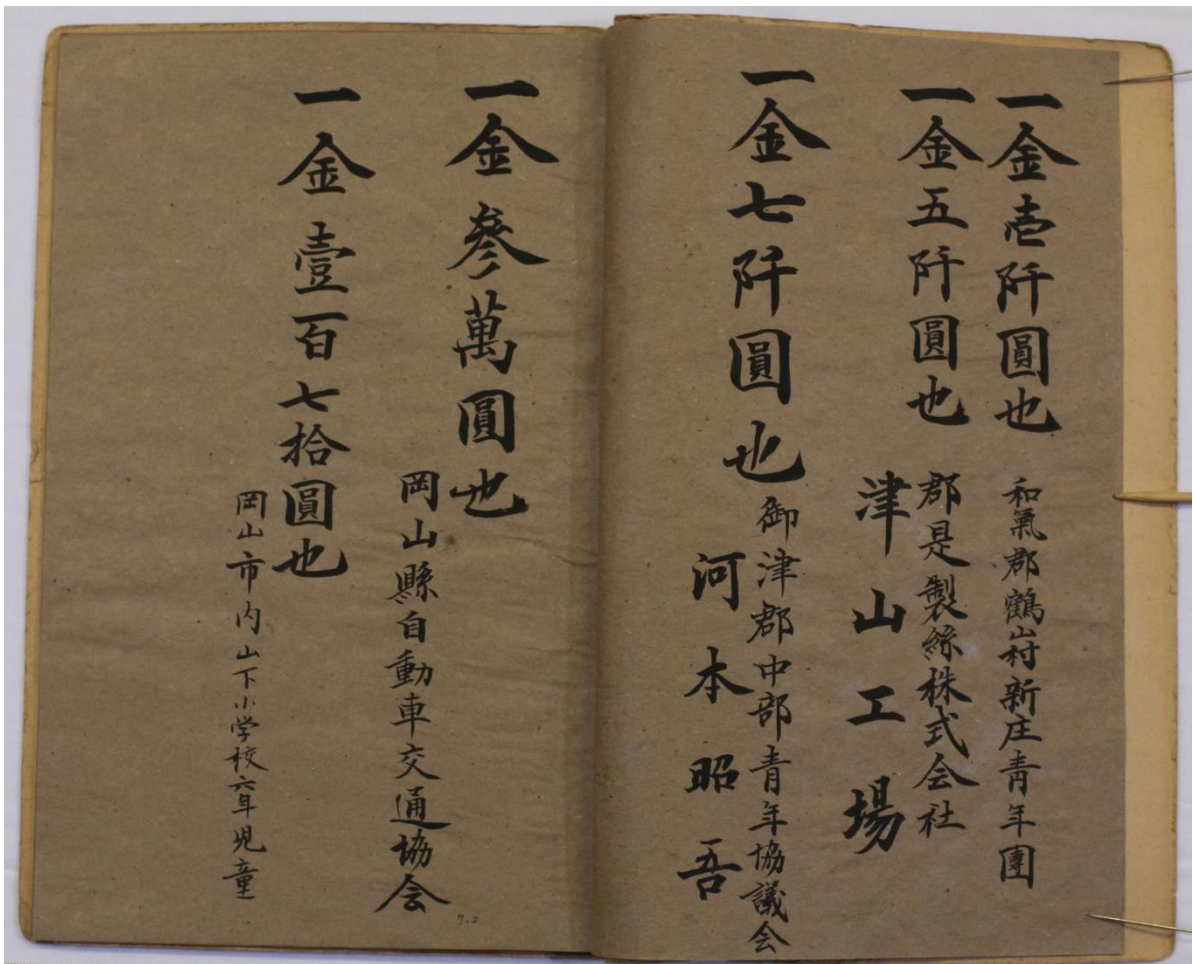 一金壱阡圓也
和氣郡鶴山村新庄青年團
一金五阡圓也
郡是製絲株式会社
津山工場
一金七阡圓也
御津郡中部青年協議会
河本昭吾
一金參萬圓也
岡山縣自動車交通協会
一金壹百七拾圓也
岡山市内山下小学校六年児童
7.2